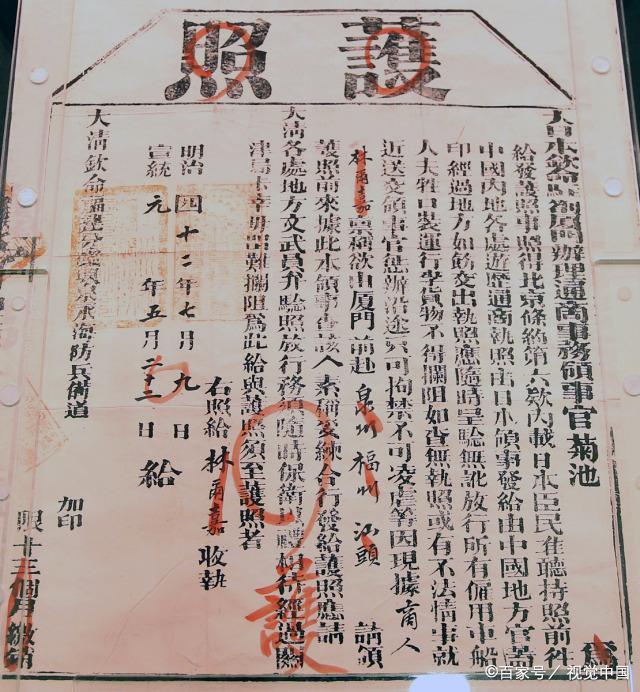 護照
大日本欽命駐劄廈門辦理通商事務領事官菊池 爲
給發護照事照得北京條約第六款內載日本臣民准聽持照前往
中國內地各處遊歷通商執照由日本領事發給由中國地方官蓋
印經過地方如飭交出執照應隨時呈驗無訛放行所有僱用車船
人夫牲口裝運行李貨物不得攔阻如查無執照或有不法情事就
近送交領事官懲辦沿途只可拘禁不可凌虐等因現據商人
林爾嘉稟稱欲由厦門前赴泉州福州汕頭請領
護照前來據此本領事查該人素稱妥練合行發給護照應請
大清各處地方文武員弁驗照放行務須隨時保衛以禮相待經過關
津局卡幸毋留難攔阻爲此給與護照須至護照者
右照給林爾嘉收執
明治四十二年七月九日
宣統元年五月二十二日給
大清欽命福建分巡興泉永海防兵備道
加印
限十三個月繳銷
護
©百家号/視覚中国